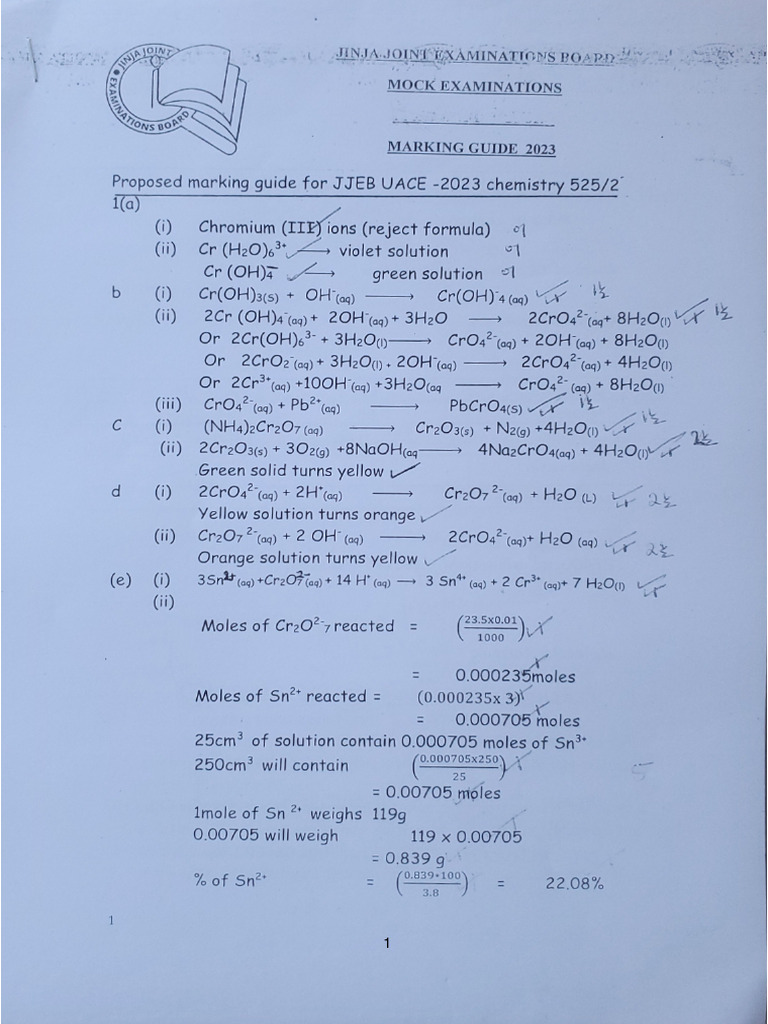 JINJA JOINT EXAMINATIONS BOARD
JINJA JOINT EXAMINATIONS BOARD
MOCK EXAMINATIONS
MARKING GUIDE 2023
Proposed marking guide for JJEB UACE -2023 chemistry 525/2
1(a)
(i) Chromium (III) ions (reject formula) 01
(ii) Cr (H₂O)₆³⁺ ⟶ violet solution 01
Cr (OH)₄⁻ ⟶ green solution 01
b (i) Cr(OH)₃(S) + OH⁻(aq) ⟶ Cr(OH)⁻₄ (aq) 1½
(ii) 2Cr (OH)₄⁻(aq) + 2OH⁻(aq) + 3H₂O ⟶ 2CrO₄²⁻(aq+ 8H₂O(l) 1½
Or 2Cr(OH)₆³⁻ + 3H₂O(l) ⟶ CrO₄²⁻(aq) + 2OH⁻(aq) + 8H₂O(l)
Or 2CrO₂⁻(aq) + 3H₂O(l) + 2OH⁻(aq) ⟶ 2CrO₄²⁻(aq) + 4H₂O(l)
Or 2Cr³⁺(aq) +10OH⁻(aq) +3H₂O(aq ⟶ CrO₄²⁻ (aq) + 8H₂O(l)
(iii) CrO₄²⁻(aq) + Pb²⁺(aq) ⟶ PbCrO₄(S) 1½
C (i) (NH₄)₂Cr₂O₇ (aq) ⟶ Cr₂O₃(s) + N₂(g) +4H₂O(l) 1½
(ii) 2Cr₂O₃(s) + 3O₂(g) +8NaOH(aq ⟶ 4Na₂CrO₄(aq) + 4H₂O(l) 2½
Green solid turns yellow
d (i) 2CrO₄²⁻(aq) + 2H⁺(aq) ⟶ Cr₂O₇ ²⁻(aq) + H₂O (L) 2½
Yellow solution turns orange
(ii) Cr₂O₇ ²⁻(aq) + 2 OH⁻ (aq) ⟶ 2CrO₄²⁻(aq)+ H₂O (aq) 2½
Orange solution turns yellow
(e) (i) 3Sn²⁺(aq) +Cr₂O₇²⁻(aq) + 14 H⁺ (aq) ⟶ 3 Sn⁴⁺ (aq) + 2 Cr³⁺ (aq)+ 7 H₂O(l)
(ii)
Moles of Cr₂O²⁻₇ reacted = (23.5x0.01/1000)
= 0.000235moles
Moles of Sn²⁺ reacted = (0.000235x 3)
= 0.000705 moles
25cm³ of solution contain 0.000705 moles of Sn³⁺
250cm³ will contain (0.000705x250/25) 5
= 0.00705 moles
1mole of Sn ²⁺ weighs 119g
0.00705 will weigh 119 x 0.00705
= 0.839 g
% of Sn²⁺ = (0.839*100/3.8) = 22.08%
1
1